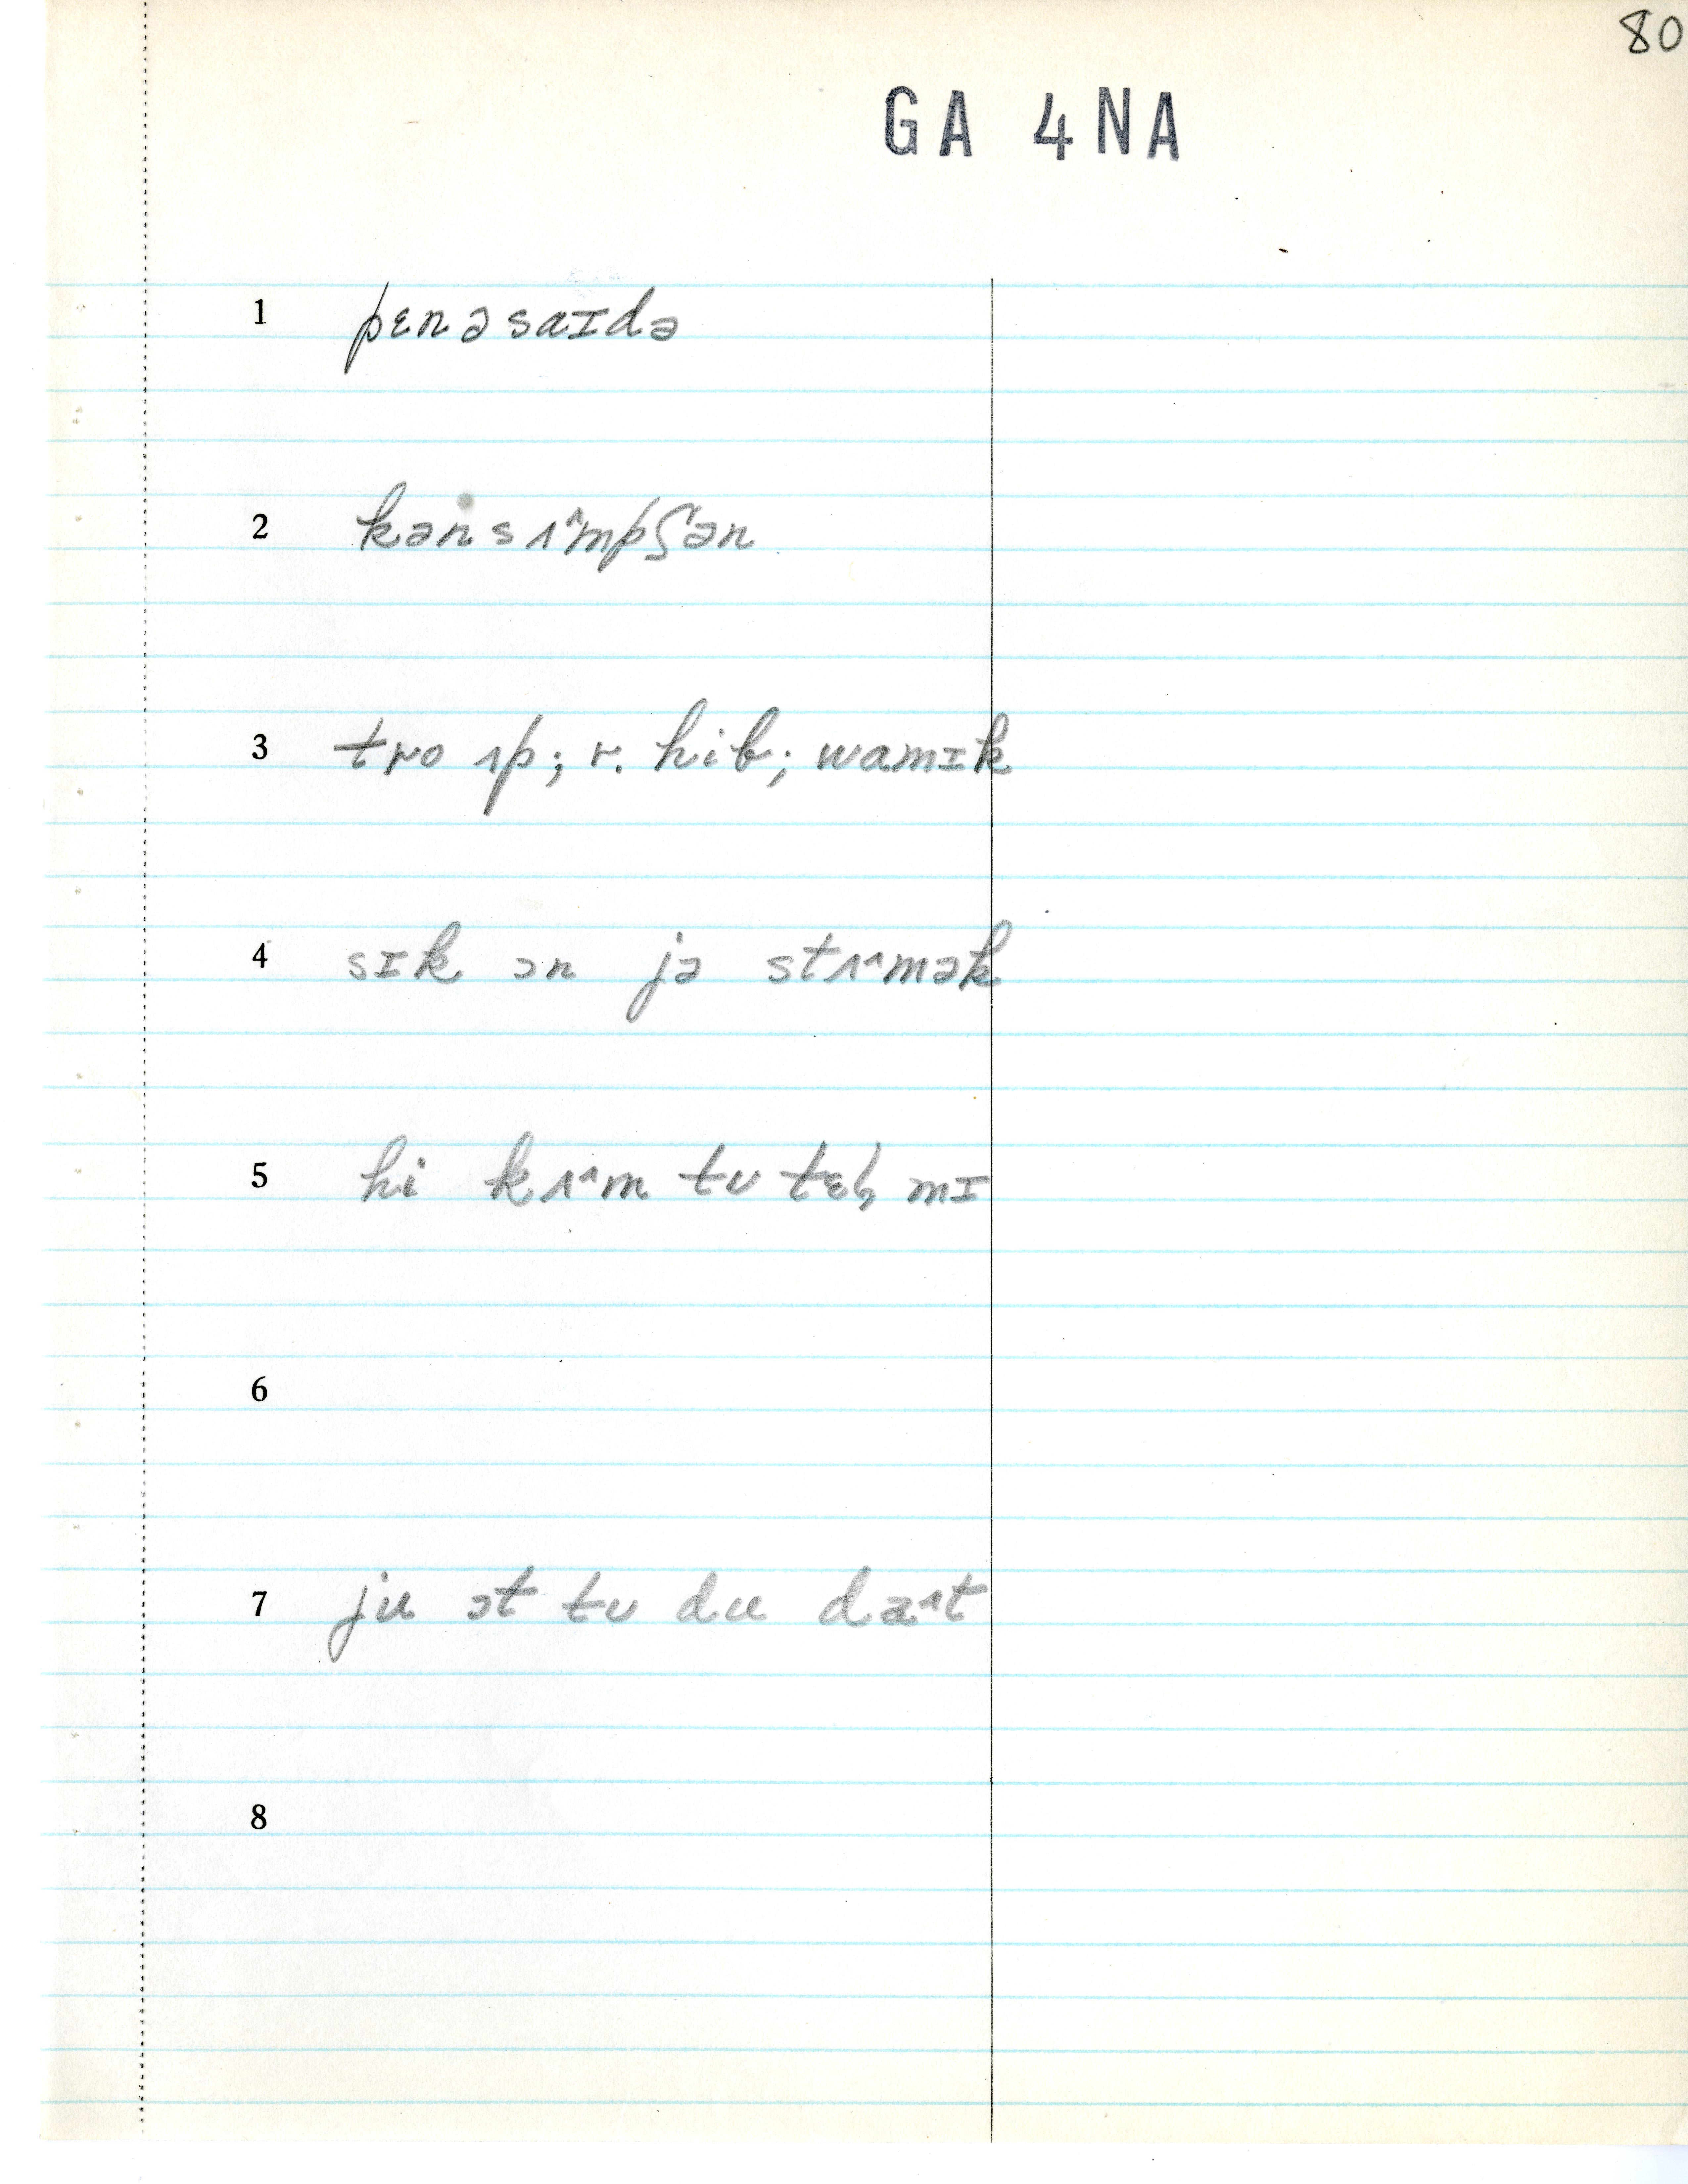 80
GA 4NA
1 pɛnəsaɪdə
2 kənsʌ^mpʃən
3 tro ʌp; r. hib; wamɪk
4 sɪk ɔn jə stʌ^mək
5 hi kʌ^m tʊ tɛɫ mɪ
6
7 ju ɔt tʊ du da^t
8